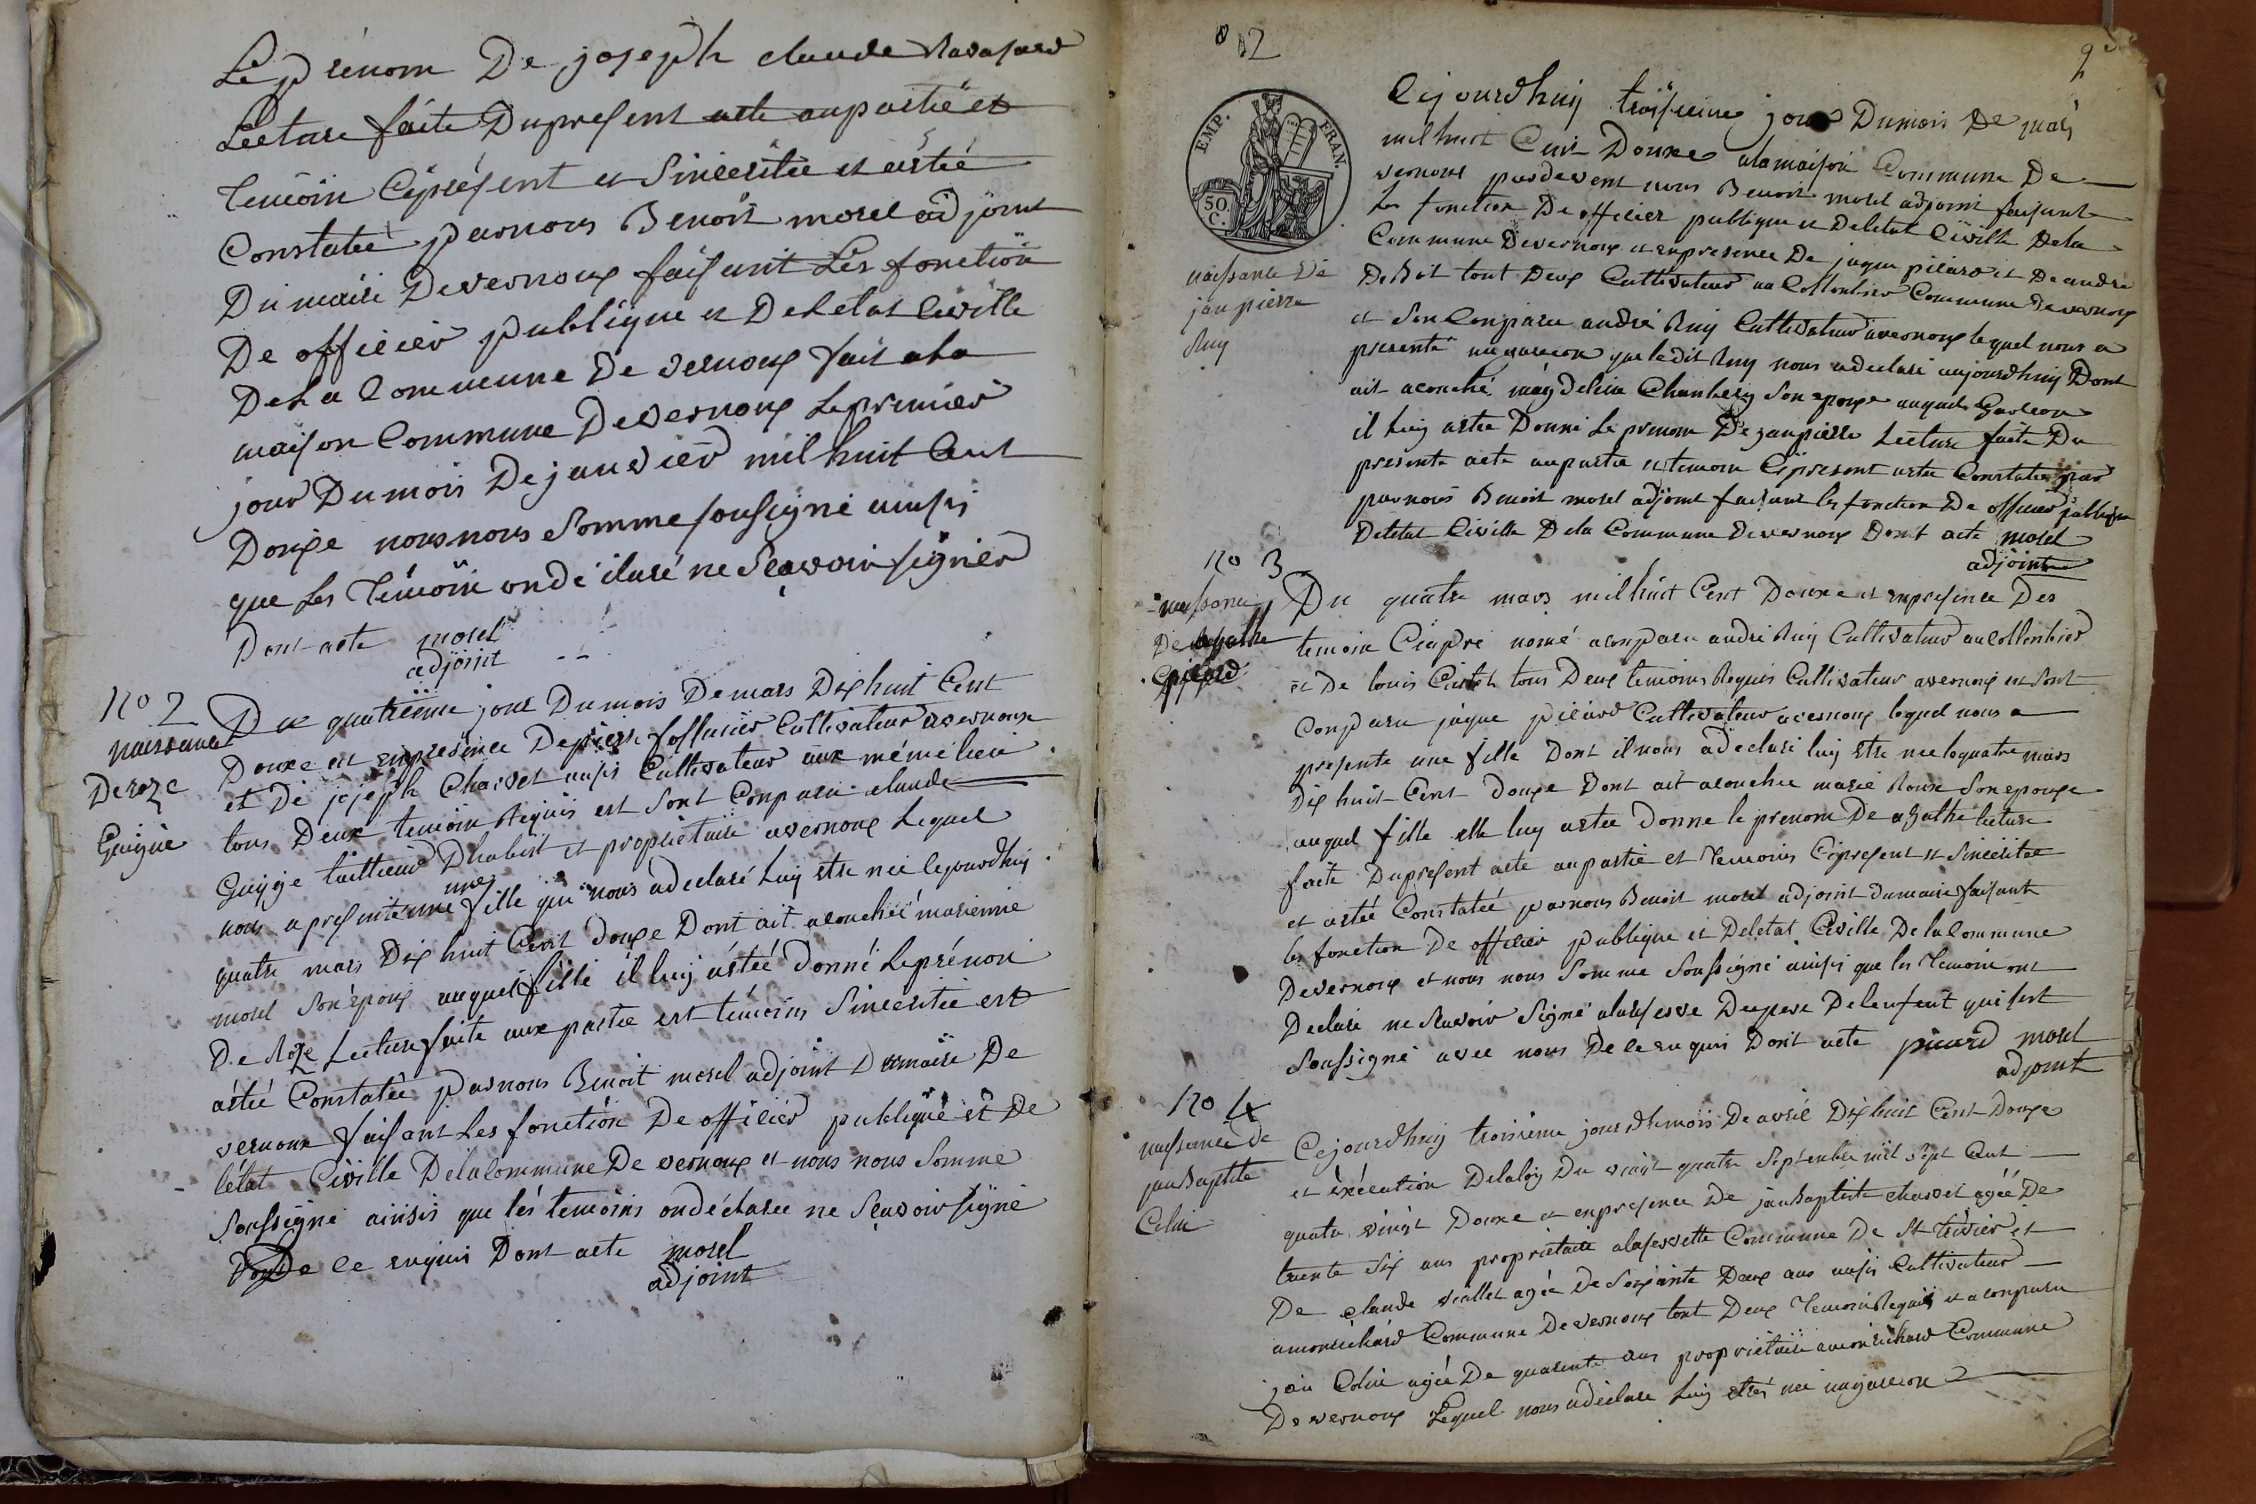 Le prénom De joseph claude
Lecture faite Dupresent acte aupartie et
temoin Cÿprésent et Sinceritée et astée
Constatée parnous Benoit morel adjoint
Du maire Devernoux faisant Les fonction
De officier publique et De Letat Civille
De La Commune De vernoux fait a la
maison Commune Devernoux Le premier
jour Dumois De janvier mil huit Cent
Douze nous nous Somme sousigné ainsis
que Les Témoin on déclaré ne Seavoir signier
Dont acte morel
adjoint
no 2
naissance
De roze
Guigue
Du quatrieme jour Dumois De mars Dix huit Cent
Douze et enpresence De pierre Cultivateur avernoux
et De jojeph Charvet ausis Cultivateur aux méme lieu
tous Deux temoin Requis est Sont Conparu claude
Guigue et propriétaire avernoux Lequel
nous a presente une fille qui nous adeclaré Luy etre née Cejourdhuy
quatre mars Dix huit Cent douze Dont ait acouchée marienne
morel Son epoux auquel fille il luy astée donné Le prénon
De Roze Lecture faite aux partie est témoins Sinceritée est
astée Constatée parnous Benoit morel adjoint Dumaire De
vernoux faisant Les fonction De officier publique et De
létat Civille Delacommune De vernoux et nous nous Somme
Soussigné ainsis que lés temoins ondéclarée ne Seavoir signé
De ce enquis Dont acte morel
adjoint
12
EMP. FRAN.
50 C.
naissance De
jan pierre
Ruy
Cejourdhuy troisieme jour Dumois De mars
mil huit Cent Douze alamaison Commune De
vernoux pardevent nous Benoit morel adjoint faisant
Les fonction De officier publique et Deletat Civille Dela
Commune Devernoux et enpresence De jaque picard et De andré
tout Deux Cultivateur au Collonbier Commune Devernoux
et Son Conparu andré Ruy Cultivateur avernoux lequel nous a
presenté ungarcon que ledit Ruy nous adeclaré aujourdhuy Dont
ait acouché magdelein Chanbery Son epouse auquel Garcon
il Luy astée Donné Le prenom De janpierre Lecture faite Du
presente acte aupartie et temoin Cÿpresent astée Constatée par
parnous Benoit morel adjoint faisant les fonction De officier publique
Deletat Civille Dela Commune Devernoux Dont acte morel
adjoint
no 3
naissance
De agathe
picard
Du quatre mars mil huit Cent Douze et enpresence Des
temoin Ciapré nomé aconparu andré Ruy Cultivateur aucollonbier
et De louis tous Deux temoins Requis Cultivateur avernoux et Sont
Conparu jaque picard Cultivateur avernoux lequel nous a
presente une fille Dont il nous adeclaré luy etre née le quatre mars
Dix huit Cent douze Dont ait acouchée marie Roux Son epouse
auquel fille elle luy astée donne le prenom De agathe lecture
faite Dupresent acte aupartie et Temoins Cÿpresent et Sinceritée
et astée Constatée parnous Benoit morel adjoint dumaire faisant
les fonction De officier publique et Deletat Civille Delacommune
Devernoux et nous nous Somme Soussigné ainsis que les Temoin ont
Declaré ne Seavoir Signé alareserve Dupere Delenfent qui sest
Soussigné avec nous De ce enquis Dont acte picard morel
adjoint
no 4
naissance de
janBaptiste
Colin
Cejourdhuy troisieme jour dumois De avril Dixhuit Cent Douze
et éxécution Delaloy Du vingt quatre Septembre mil sept Cent
quatre vingt Douze et enpresence De janBaptiste charvet ageé De
trente Six ans propriétaire Commune De St trivier et
De claude viallet agée De Soixante Deux ans ausis Cultivateur
amonrichard Commune Devernoux tout Deux Temoin Requis et aconparu
jan Colin agée De quarente ans propriétaire amonrichard Commune
De vernoux Lequel nous adéclaré Luy etre née ungarcon